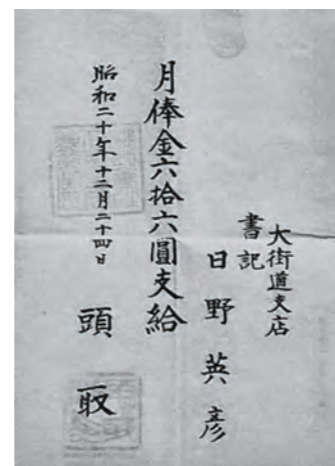 大街道支店
書記
日野英彦
月俸金六拾六圓支給
昭和二十年十二月二十四日
頭取